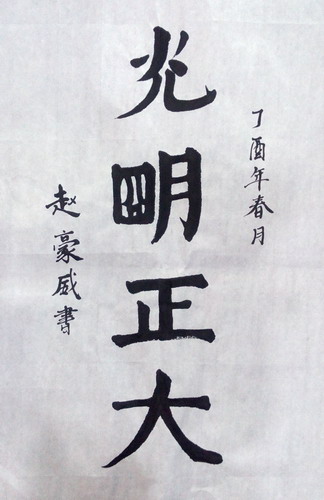 丁酉年春月
光明正大
赵豪威書